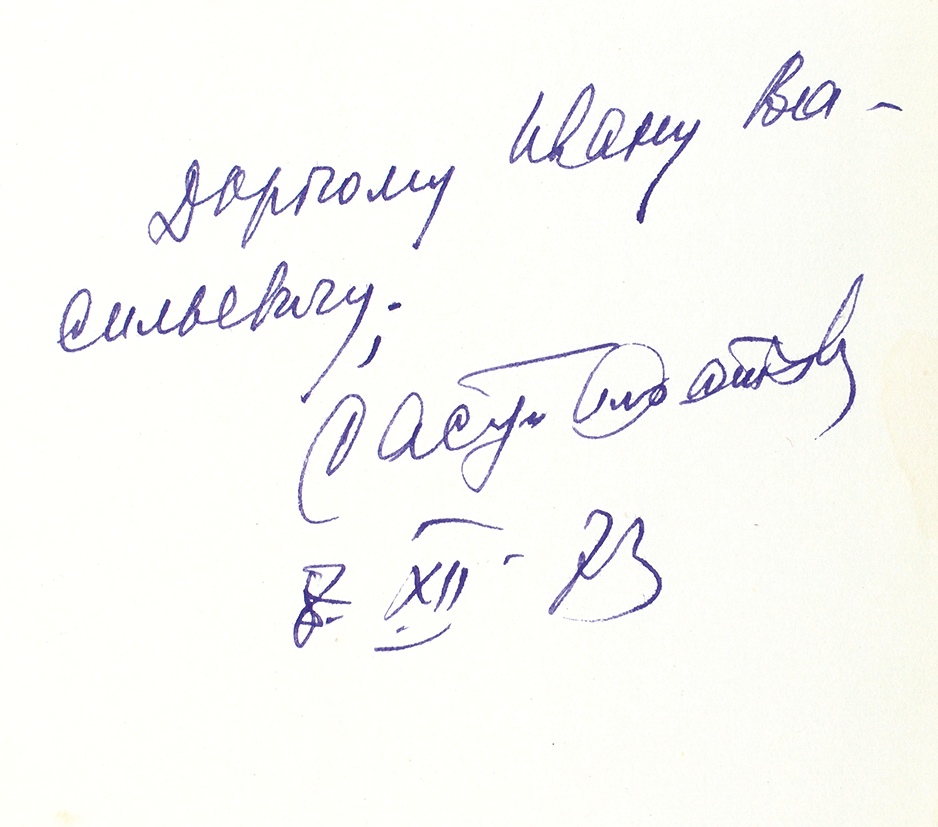 Дорогому Ивану Ва-
сильевичу,
Расул Гамзатов
8. XII - 73